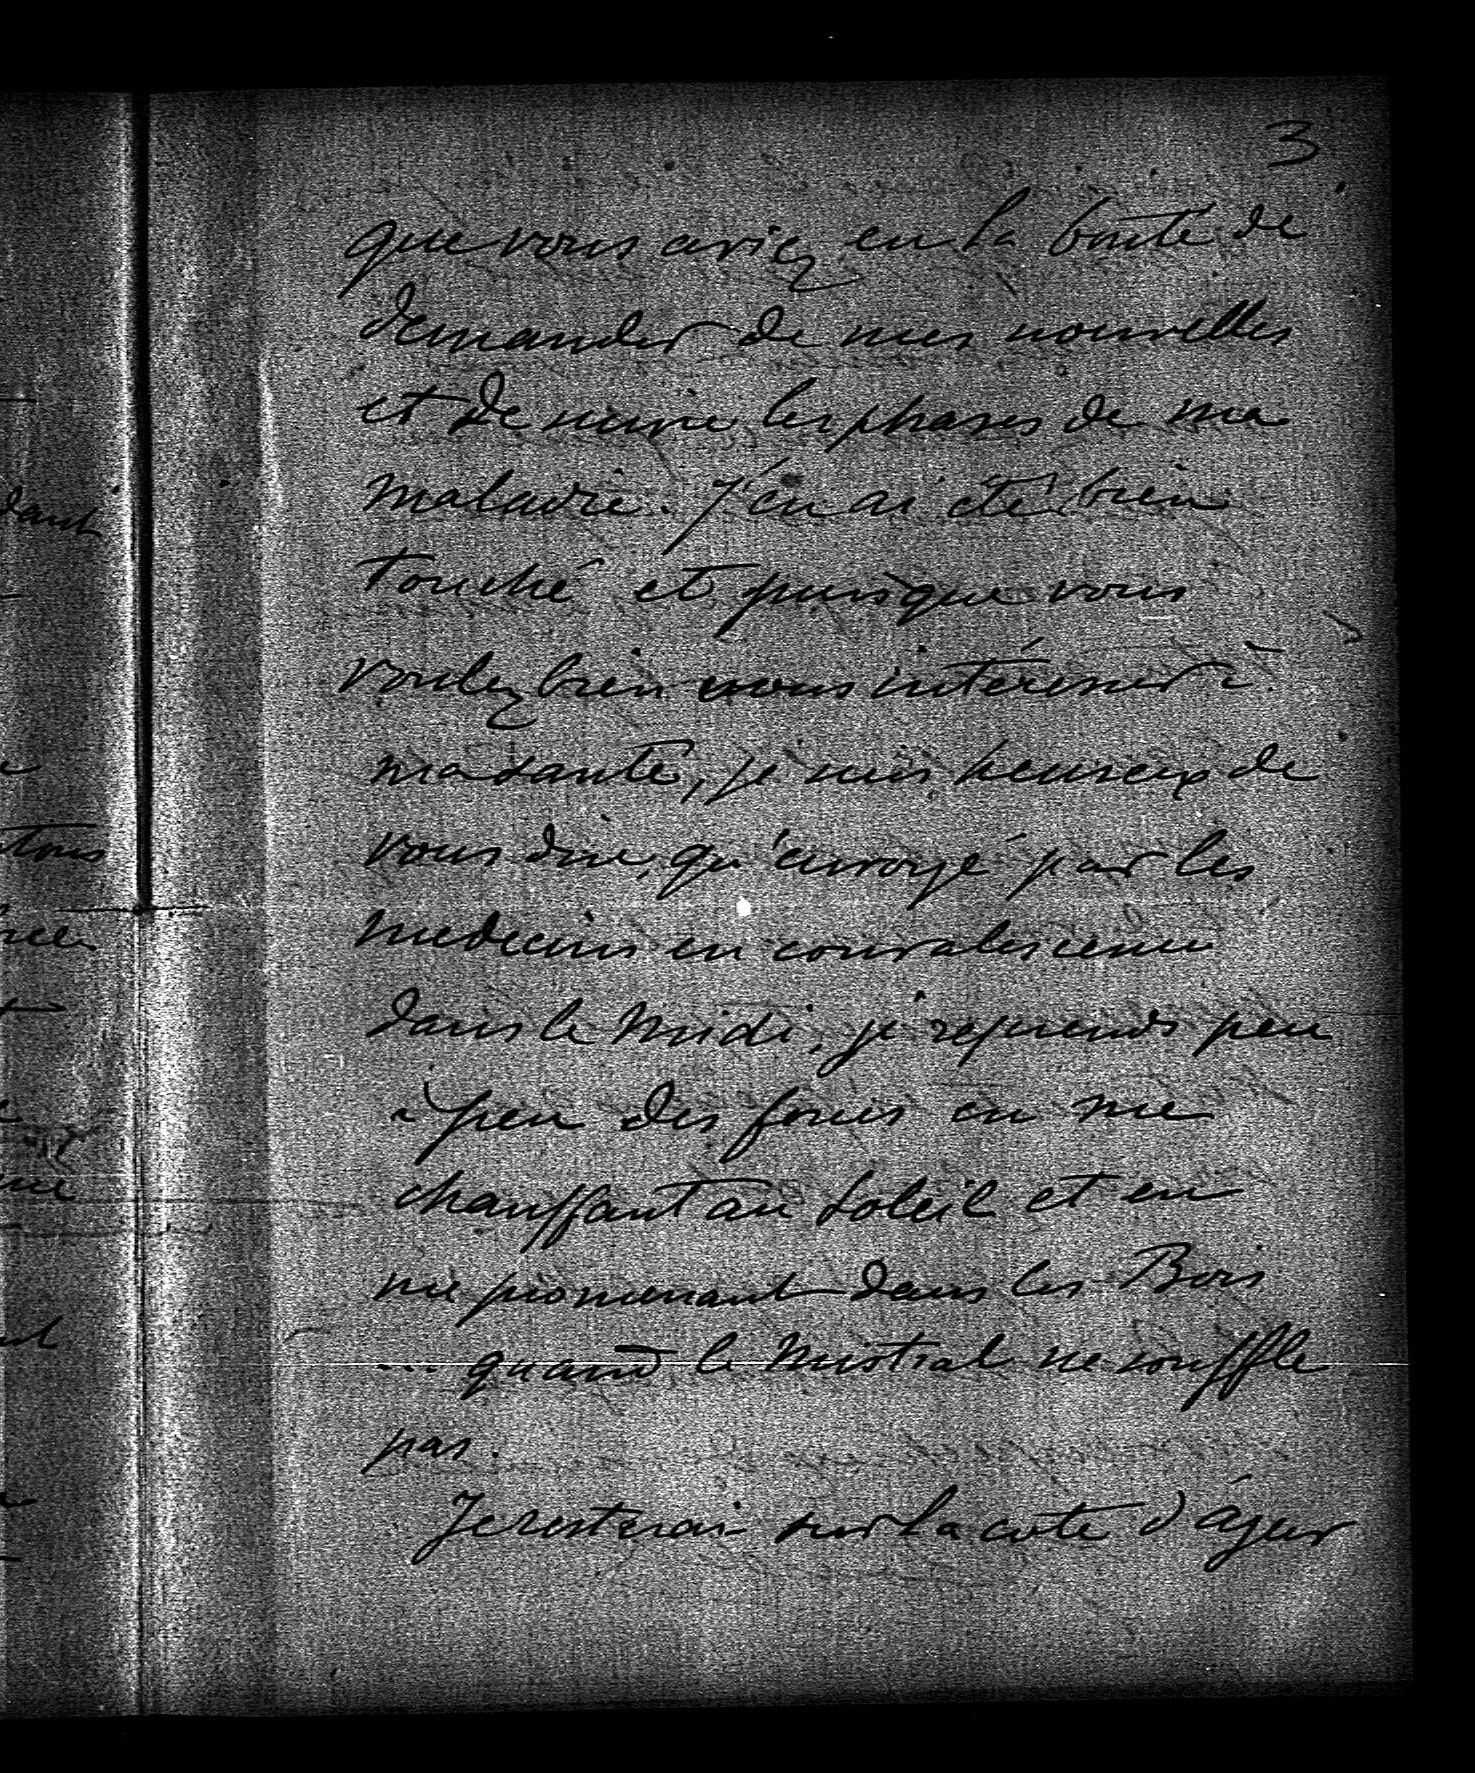 3
que vous aviez eu la bonté de
demander de mes nouvelles
et de suivre les phases de ma
maladie. J'en ai été bien
touché et puisque vous
voulez bien vous intéresser à
ma santé, je suis heureux de
vous dire, qu'envoyé par les
medecins en convalescence
dans le Midi, je reprends peu
à peu des forces en me
chauffant au soleil et en
me promenant dans les Bois
... quand le Mistral ne souffle
pas.
Je resterai sur la cote d'Azur